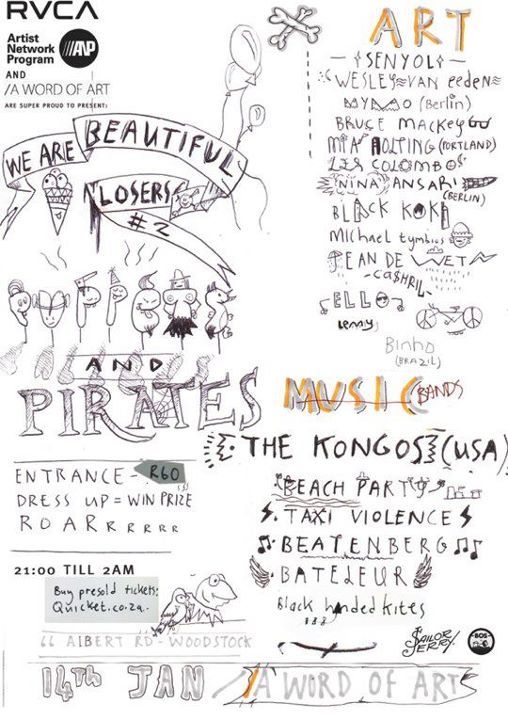 RVCA
Artist
Network
Program
/AP
AND
/A WORD OF ART
ARE SUPER PROUD TO PRESENT:
WE ARE BEAUTIFUL
LOSERS
#2
PUPPETS
AND
PIRATES
ENTRANCE - R60
DRESS UP = WIN PRIZE
ROARRRRRR
21:00 TILL 2AM
Buy presold tickets:
Quicket.co.za.
66 AlBERT RD - WOODSTOCK
14TH JAN
ART
SENYOL
WESLEY VAN eeDEN
(Berlin)
BRUCE MACKEY
MIA NOLTING (PORTLAND)
LES COLOMBOS
NINA ANSARI
(BERLIN)
BLACK KOKI
Michael tymbios
JEAN DE WET
CA$HRIL
ELLO
lenny
Binho
(BRAZIL)
MUSIC BANDS
THE KONGOS (USA)
BEACH PARTY
TAXI VIOLENCE
BEATENBERG
BATELEUR
Black handed kites
SAILOR
JERRY
BOS
/A WORD OF ART